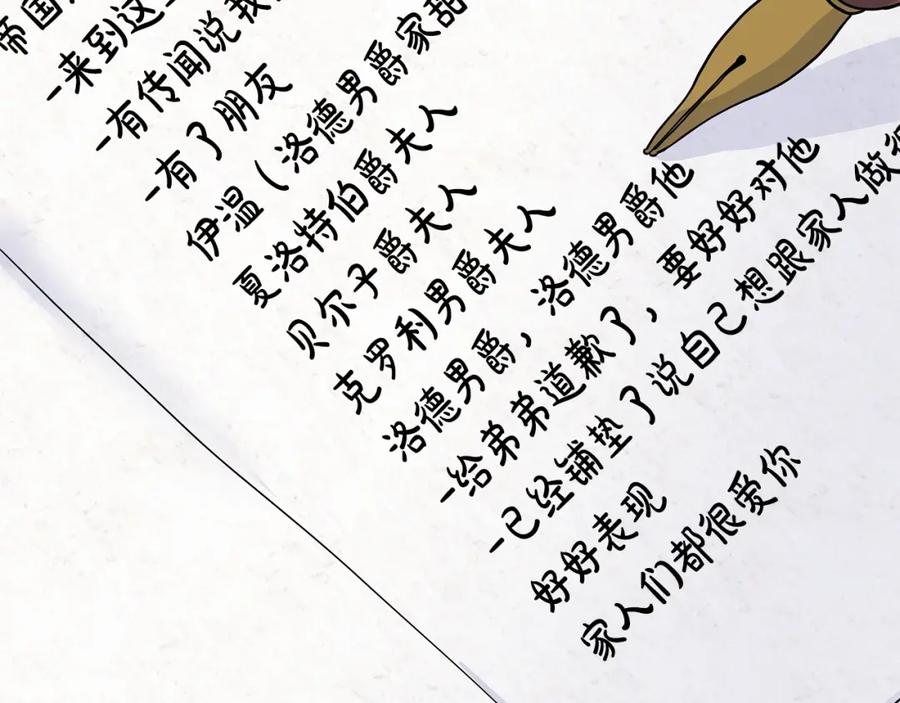 帝国
-来到这
-有传闻说我
-有了朋友
伊温（洛德男爵家甜
夏洛特伯爵夫人
贝尔子爵夫人
克罗利男爵夫人
洛德男爵，洛德男爵他
-给弟弟道歉了，要好好对他
-已经铺垫了说自己想跟家人做很
好好表现
家人们都很爱你